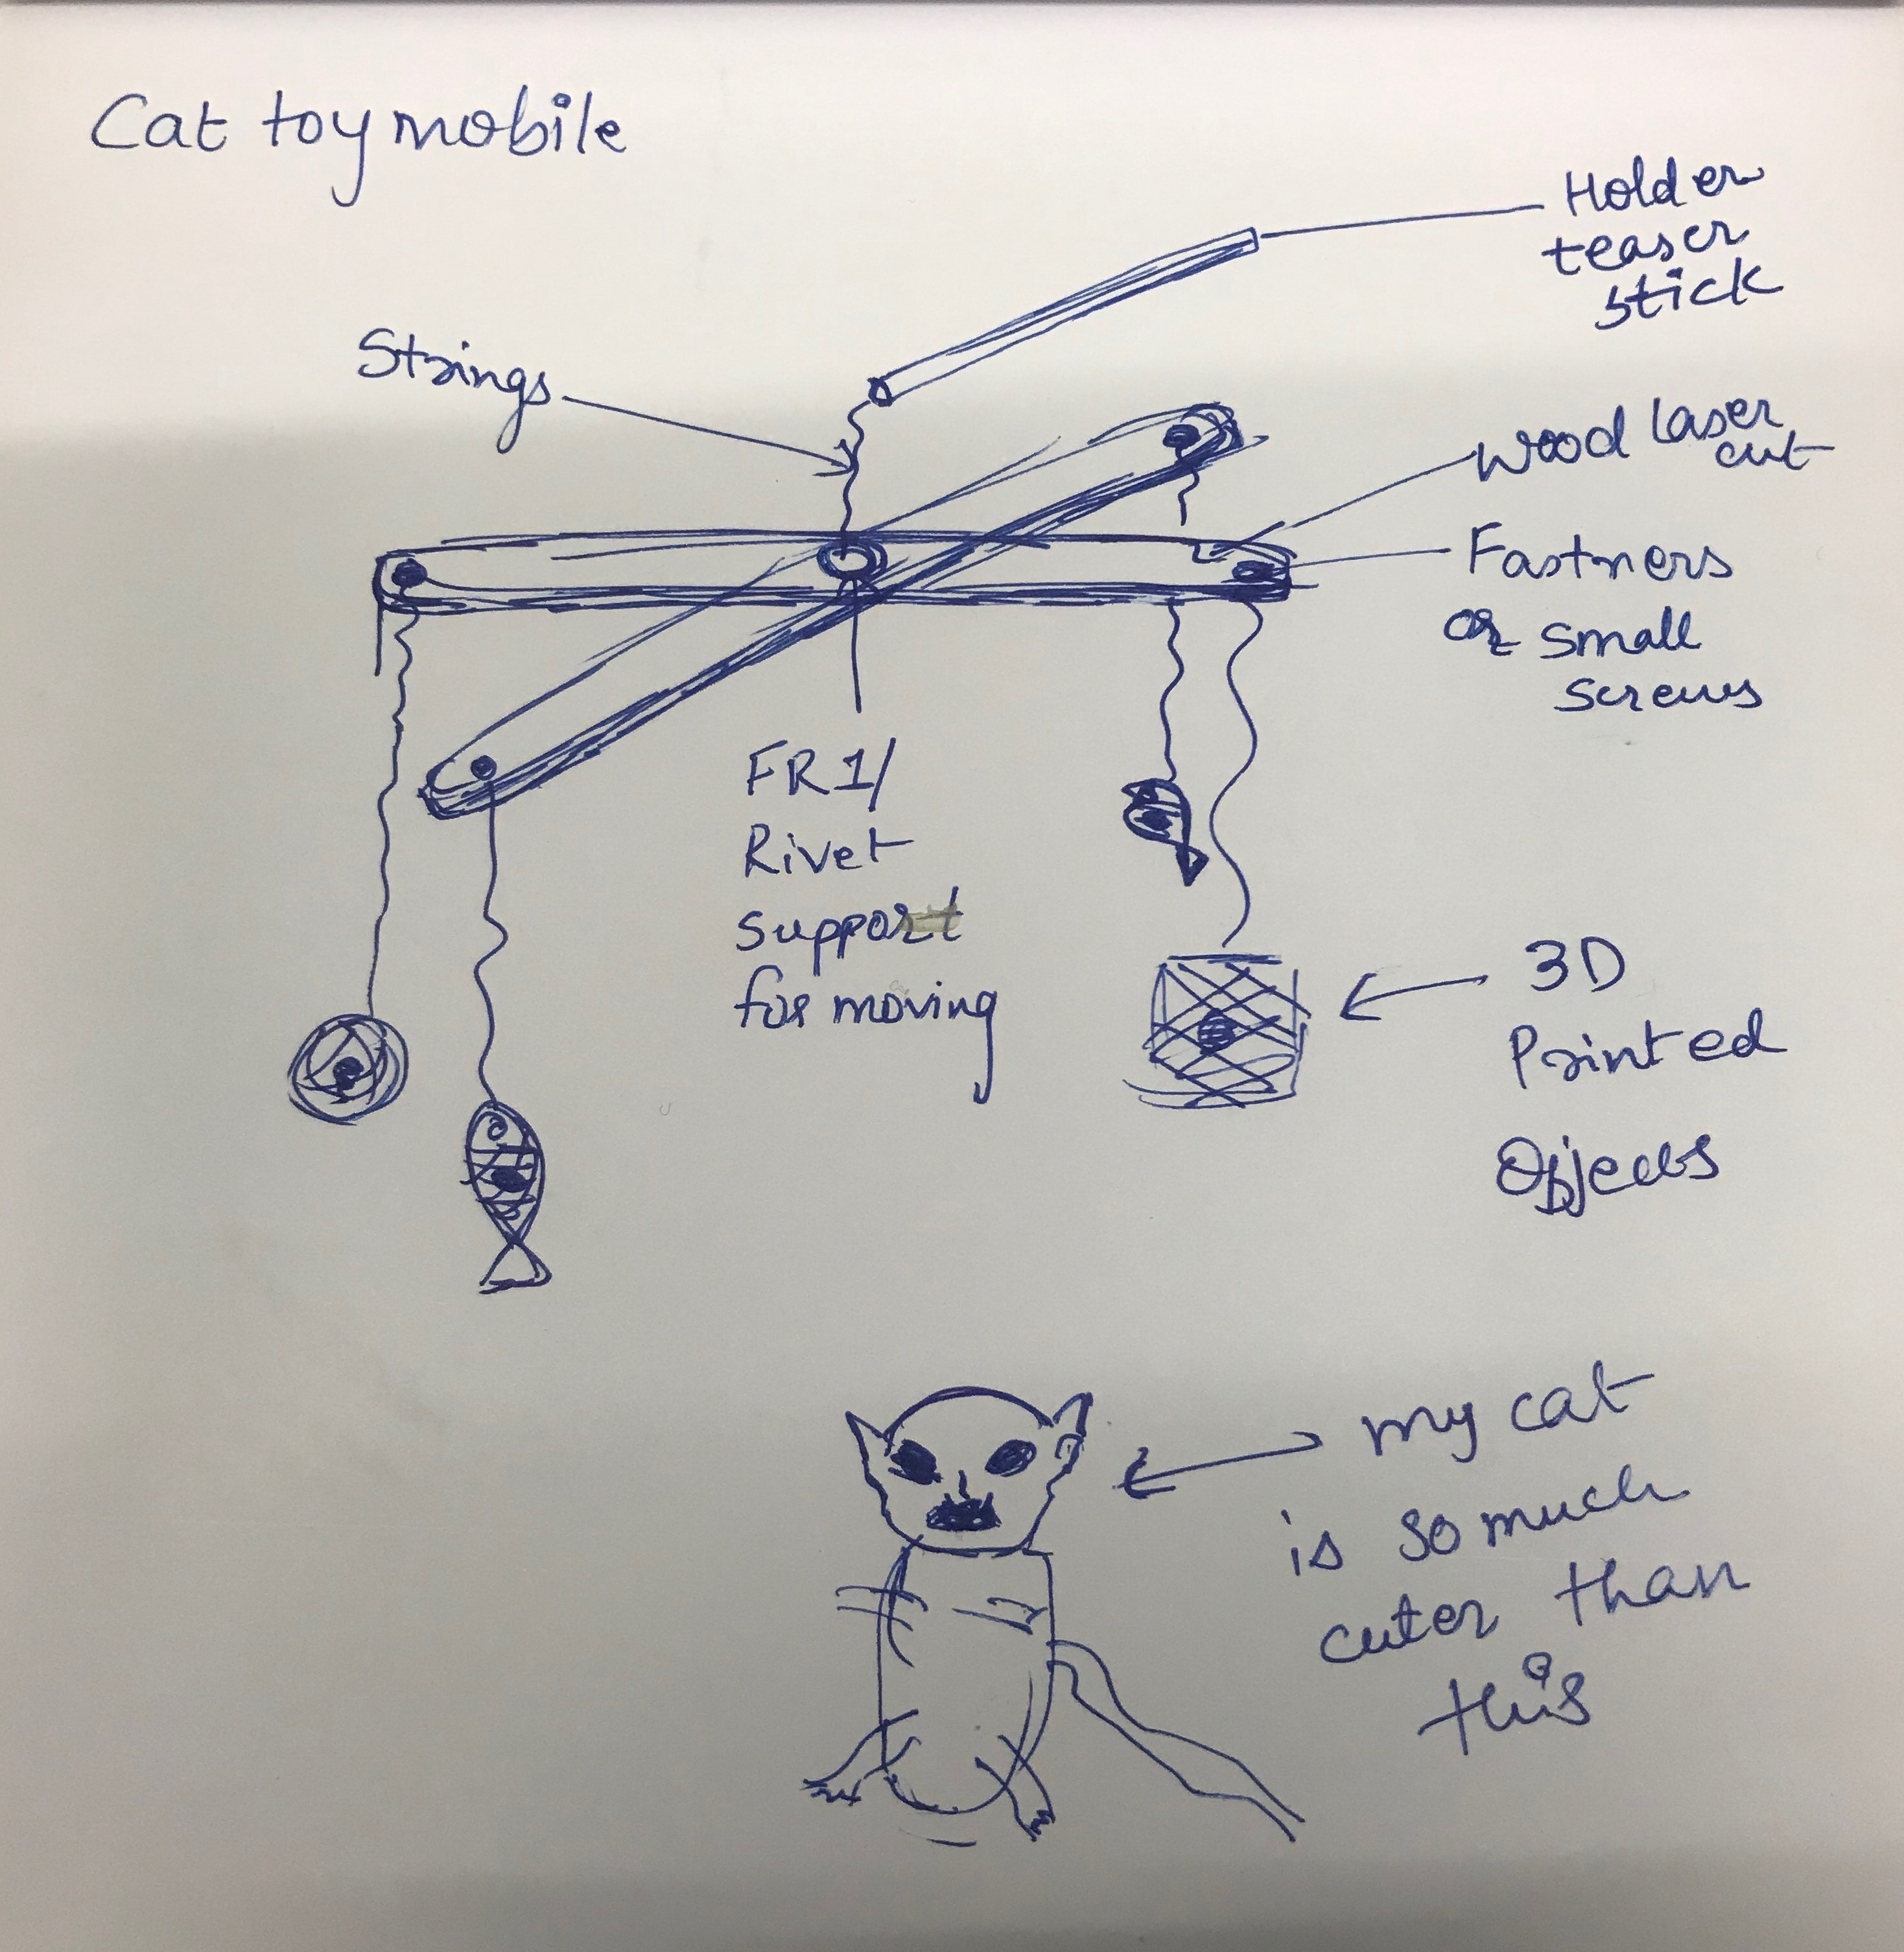 Cat toy mobile
Holder
teaser
stick
Strings
Wood laser
cut
Fastners
or small
screws
FR1/
Rivet
support
for moving
3D
Printed
Objects
my cat
is so much
cuter than
this